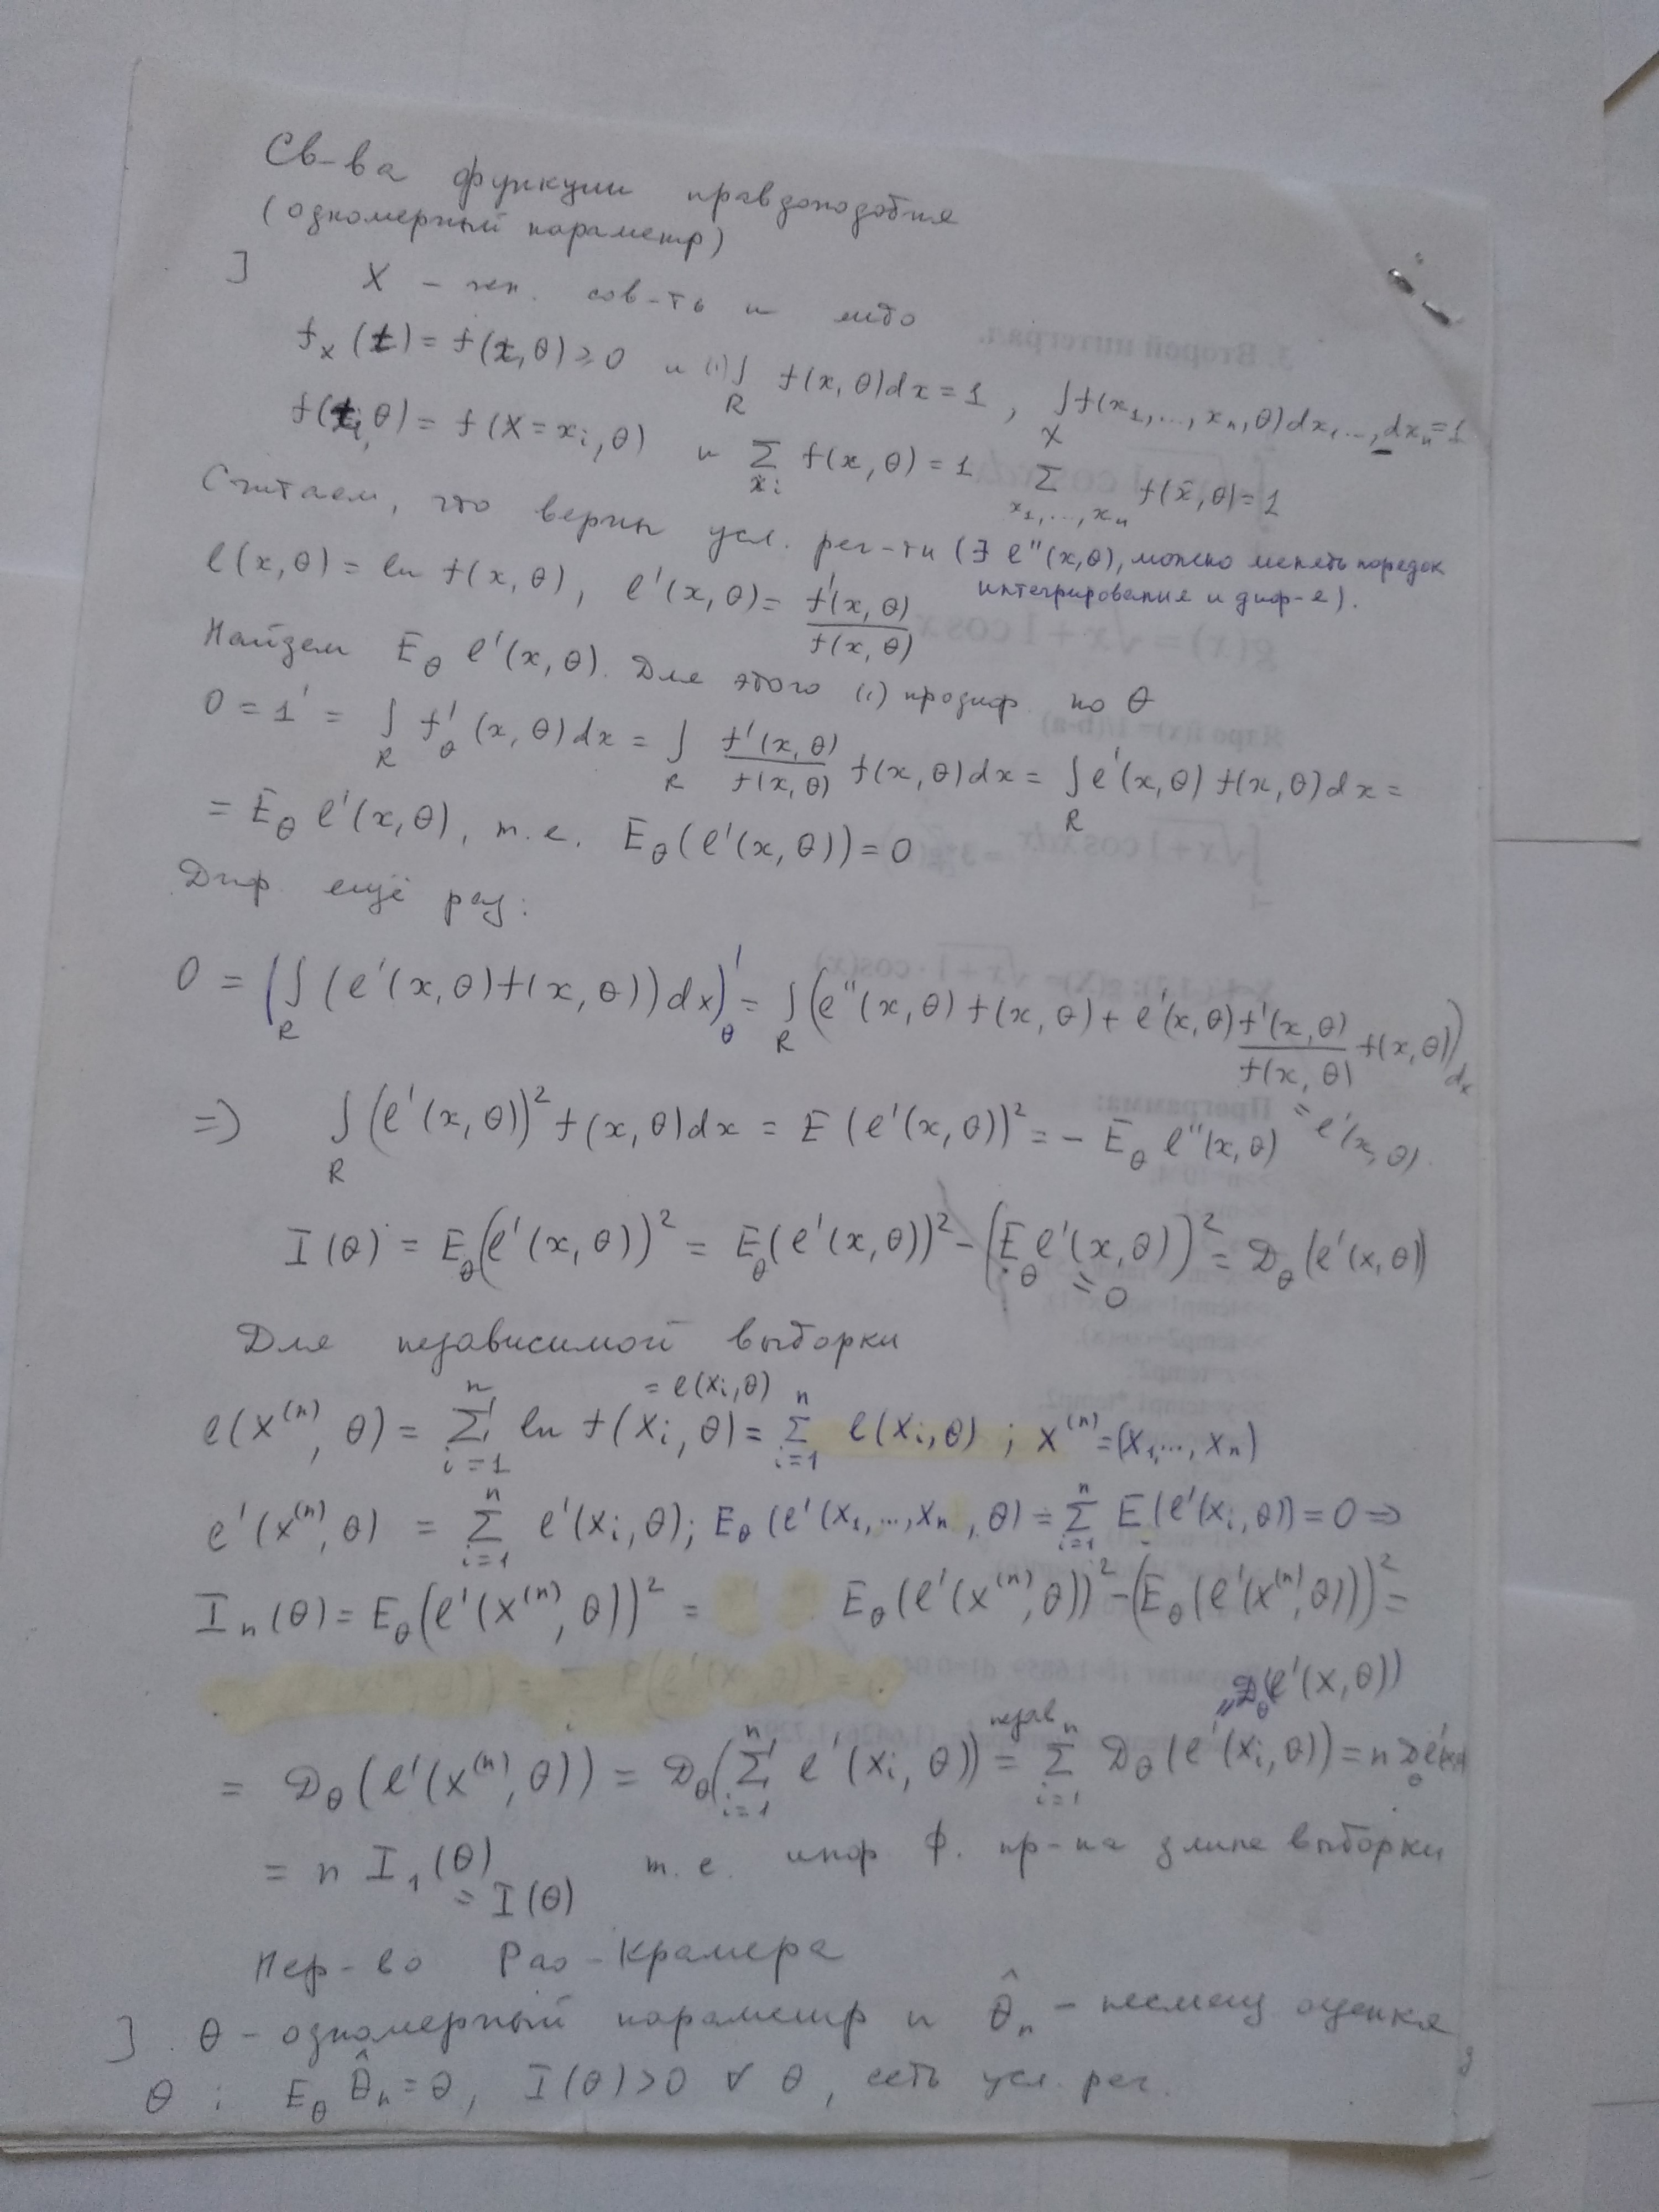 Св-ва функции правдоподобия
(одномерный параметр)
] X – ген. сов-ть и либо
f_X(t) = f(t, θ) ≥ 0 и (1) ∫_R f(x, θ)dx = 1, ∫_X f(x_1, ..., x_n, θ)dx_1 ... dx_n = 1
f(t_i, θ) = f(X = x_i, θ) и Σ_{x_i} f(x, θ) = 1 Σ_{x_1, ..., x_n} f(x̄, θ) = 1
Считаем, что верны усл. рег-ти (∃ l''(x, θ), можно менять порядок
интегрирования и диф-я).
l(x, θ) = ln f(x, θ), l'(x, θ) = f'(x, θ) / f(x, θ)
Найдем E_θ l'(x, θ). Для этого (1) продиф. по θ
0 = 1' = ∫_R f'_θ(x, θ)dx = ∫_R f'(x, θ)/f(x, θ) f(x, θ)dx = ∫_R l'(x, θ) f(x, θ)dx =
= E_θ l'(x, θ), т.е. E_θ(l'(x, θ)) = 0
Диф. ещё раз:
0 = (∫_R (l'(x, θ) f(x, θ))dx)'_θ = ∫_R (l''(x, θ) f(x, θ) + l'(x, θ) f'(x, θ)/f(x, θ) f(x, θ))dx
= l'(x, θ)
=> ∫_R (l'(x, θ))² f(x, θ)dx = E(l'(x, θ))² = – E_θ l''(x, θ)
I(θ) = E_θ(l'(x, θ))² = E_θ(l'(x, θ))² – (E_θ l'(x, θ))² = D_θ(l'(x, θ))
= 0
Для независимой выборки
= l(x_i, θ)
l(X^(n), θ) = Σ_{i=1}^n ln f(X_i, θ) = Σ_{i=1}^n l(X_i, θ) ; X^(n) = (X_1, ..., X_n)
l'(X^(n), θ) = Σ_{i=1}^n l'(X_i, θ); E_θ(l'(X_1, ..., X_n, θ) = Σ_{i=1}^n E(l'(X_i, θ)) = 0 =>
I_n(θ) = E_θ(l'(X^(n), θ))² = E_θ(l'(X^(n), θ))² – (E_θ(l'(X^(n), θ)))² =
= D_θ(l'(X, θ))
= D_θ(l'(X^(n), θ)) = D_θ(Σ_{i=1}^n l'(X_i, θ)) =(незав) Σ_{i=1}^n D_θ(l'(X_i, θ)) = n D_θ l'
= n I_1(θ) т.е. инф. ф. пр-на длине выборки
= I(θ)
Нер-во Рао-Крамера
] θ – одномерный параметр и θ̂_n – несмещ оценка
θ : E_θ θ̂_n = θ, I(θ) > 0 ∀ θ, есть усл. рег.